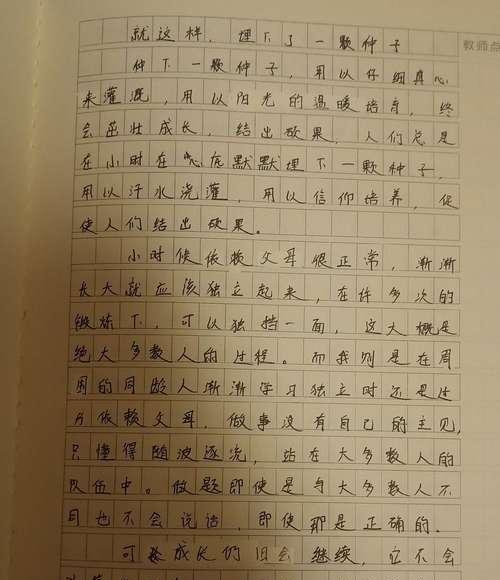 就这样，埋下了一颗种子
教师点
种下一颗种子，用以仔细真心
来灌溉，用以阳光的温暖培育，终
会茁壮成长，结出硕果。人们总是
在小时在心底默默埋下一颗种子，
用以汗水浇灌，用以信仰培养，促
使人们结出硕果。
小时候依赖父母很正常，渐渐
长大就应该独立起来，在许多次的
锻炼下，可以独挡一面，这大概是
绝大多数人的过程。而我则是在周
围的同龄人渐渐学习独立时还是过
分依赖父母，做事没有自己的主见，
只懂得随波逐流，站在大多数人的
队伍中。做题即使是与大多数人不
同也不会说话，即使那是正确的。
可是成长仍旧会继续，它不会